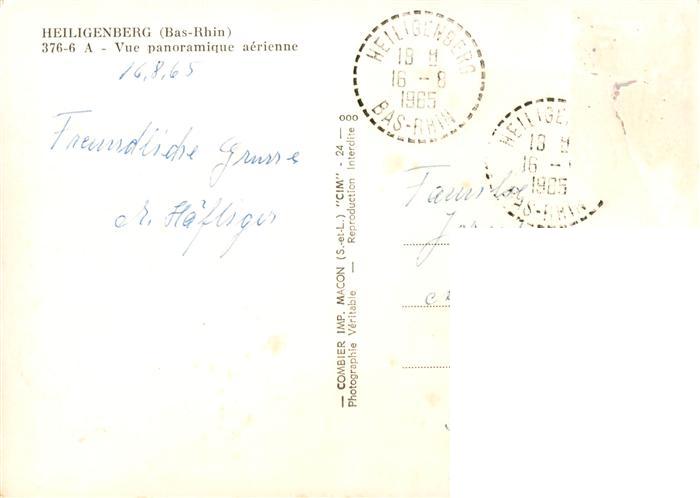 HEILIGENBERG (Bas-Rhin)
376-6 A - Vue panoramique aérienne
16.8.65
Freundliche Grüsse
Häfliger
HEILIGENBERG
19 H
16 - 8
1965
BAS-RHIN
— COMBIER IMP. MACON (S.-et-L.) "CIM" - 24 — ooo
Photographie Véritable — Reproduction Interdite
HEILIGE
19 H
16 -
1965
BAS-RHIN
Familie